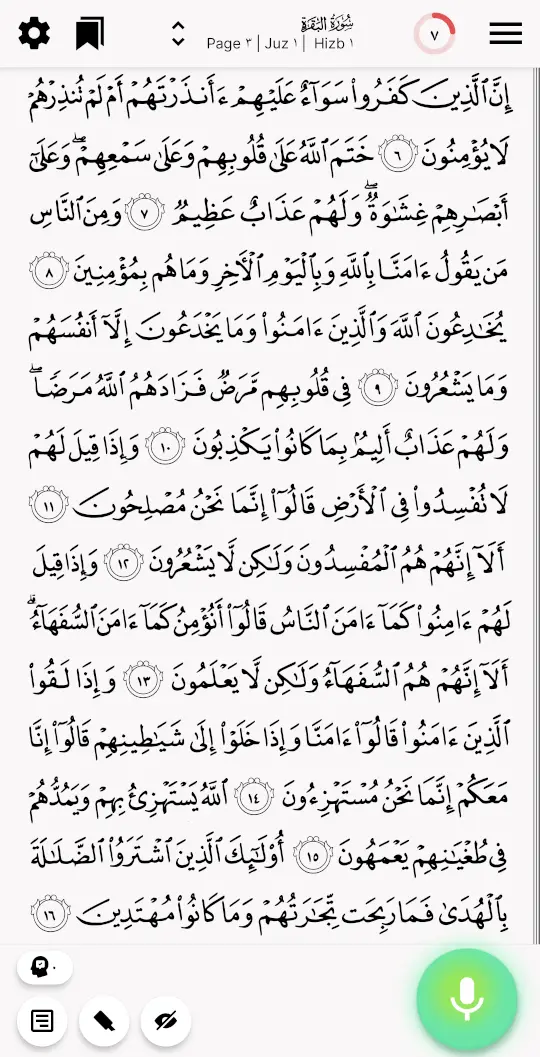 سُورَةُ البَقَرَة
Page ٣ | Juz ١ | Hizb ١
٧
إِنَّ ٱلَّذِينَ كَفَرُوا۟ سَوَآءٌ عَلَيْهِمْ ءَأَنذَرْتَهُمْ أَمْ لَمْ تُنذِرْهُمْ
لَا يُؤْمِنُونَ ٦ خَتَمَ ٱللَّهُ عَلَىٰ قُلُوبِهِمْ وَعَلَىٰ سَمْعِهِمْ ۖ وَعَلَىٰٓ
أَبْصَـٰرِهِمْ غِشَـٰوَةٌ ۖ وَلَهُمْ عَذَابٌ عَظِيمٌ ٧ وَمِنَ ٱلنَّاسِ
مَن يَقُولُ ءَامَنَّا بِٱللَّهِ وَبِٱلْيَوْمِ ٱلْـَٔاخِرِ وَمَا هُم بِمُؤْمِنِينَ ٨
يُخَـٰدِعُونَ ٱللَّهَ وَٱلَّذِينَ ءَامَنُوا۟ وَمَا يَخْدَعُونَ إِلَّآ أَنفُسَهُمْ
وَمَا يَشْعُرُونَ ٩ فِى قُلُوبِهِم مَّرَضٌ فَزَادَهُمُ ٱللَّهُ مَرَضًا ۖ
وَلَهُمْ عَذَابٌ أَلِيمٌۢ بِمَا كَانُوا۟ يَكْذِبُونَ ١٠ وَإِذَا قِيلَ لَهُمْ
لَا تُفْسِدُوا۟ فِى ٱلْأَرْضِ قَالُوٓا۟ إِنَّمَا نَحْنُ مُصْلِحُونَ ١١
أَلَآ إِنَّهُمْ هُمُ ٱلْمُفْسِدُونَ وَلَـٰكِن لَّا يَشْعُرُونَ ١٢ وَإِذَا قِيلَ
لَهُمْ ءَامِنُوا۟ كَمَآ ءَامَنَ ٱلنَّاسُ قَالُوٓا۟ أَنُؤْمِنُ كَمَآ ءَامَنَ ٱلسُّفَهَآءُ ۗ
أَلَآ إِنَّهُمْ هُمُ ٱلسُّفَهَآءُ وَلَـٰكِن لَّا يَعْلَمُونَ ١٣ وَإِذَا لَقُوا۟
ٱلَّذِينَ ءَامَنُوا۟ قَالُوٓا۟ ءَامَنَّا وَإِذَا خَلَوْا۟ إِلَىٰ شَيَـٰطِينِهِمْ قَالُوٓا۟ إِنَّا
مَعَكُمْ إِنَّمَا نَحْنُ مُسْتَهْزِءُونَ ١٤ ٱللَّهُ يَسْتَهْزِئُ بِهِمْ وَيَمُدُّهُمْ
فِى طُغْيَـٰنِهِمْ يَعْمَهُونَ ١٥ أُو۟لَـٰٓئِكَ ٱلَّذِينَ ٱشْتَرَوُا۟ ٱلضَّلَـٰلَةَ
بِٱلْهُدَىٰ فَمَا رَبِحَت تِّجَـٰرَتُهُمْ وَمَا كَانُوا۟ مُهْتَدِينَ ١٦
٠